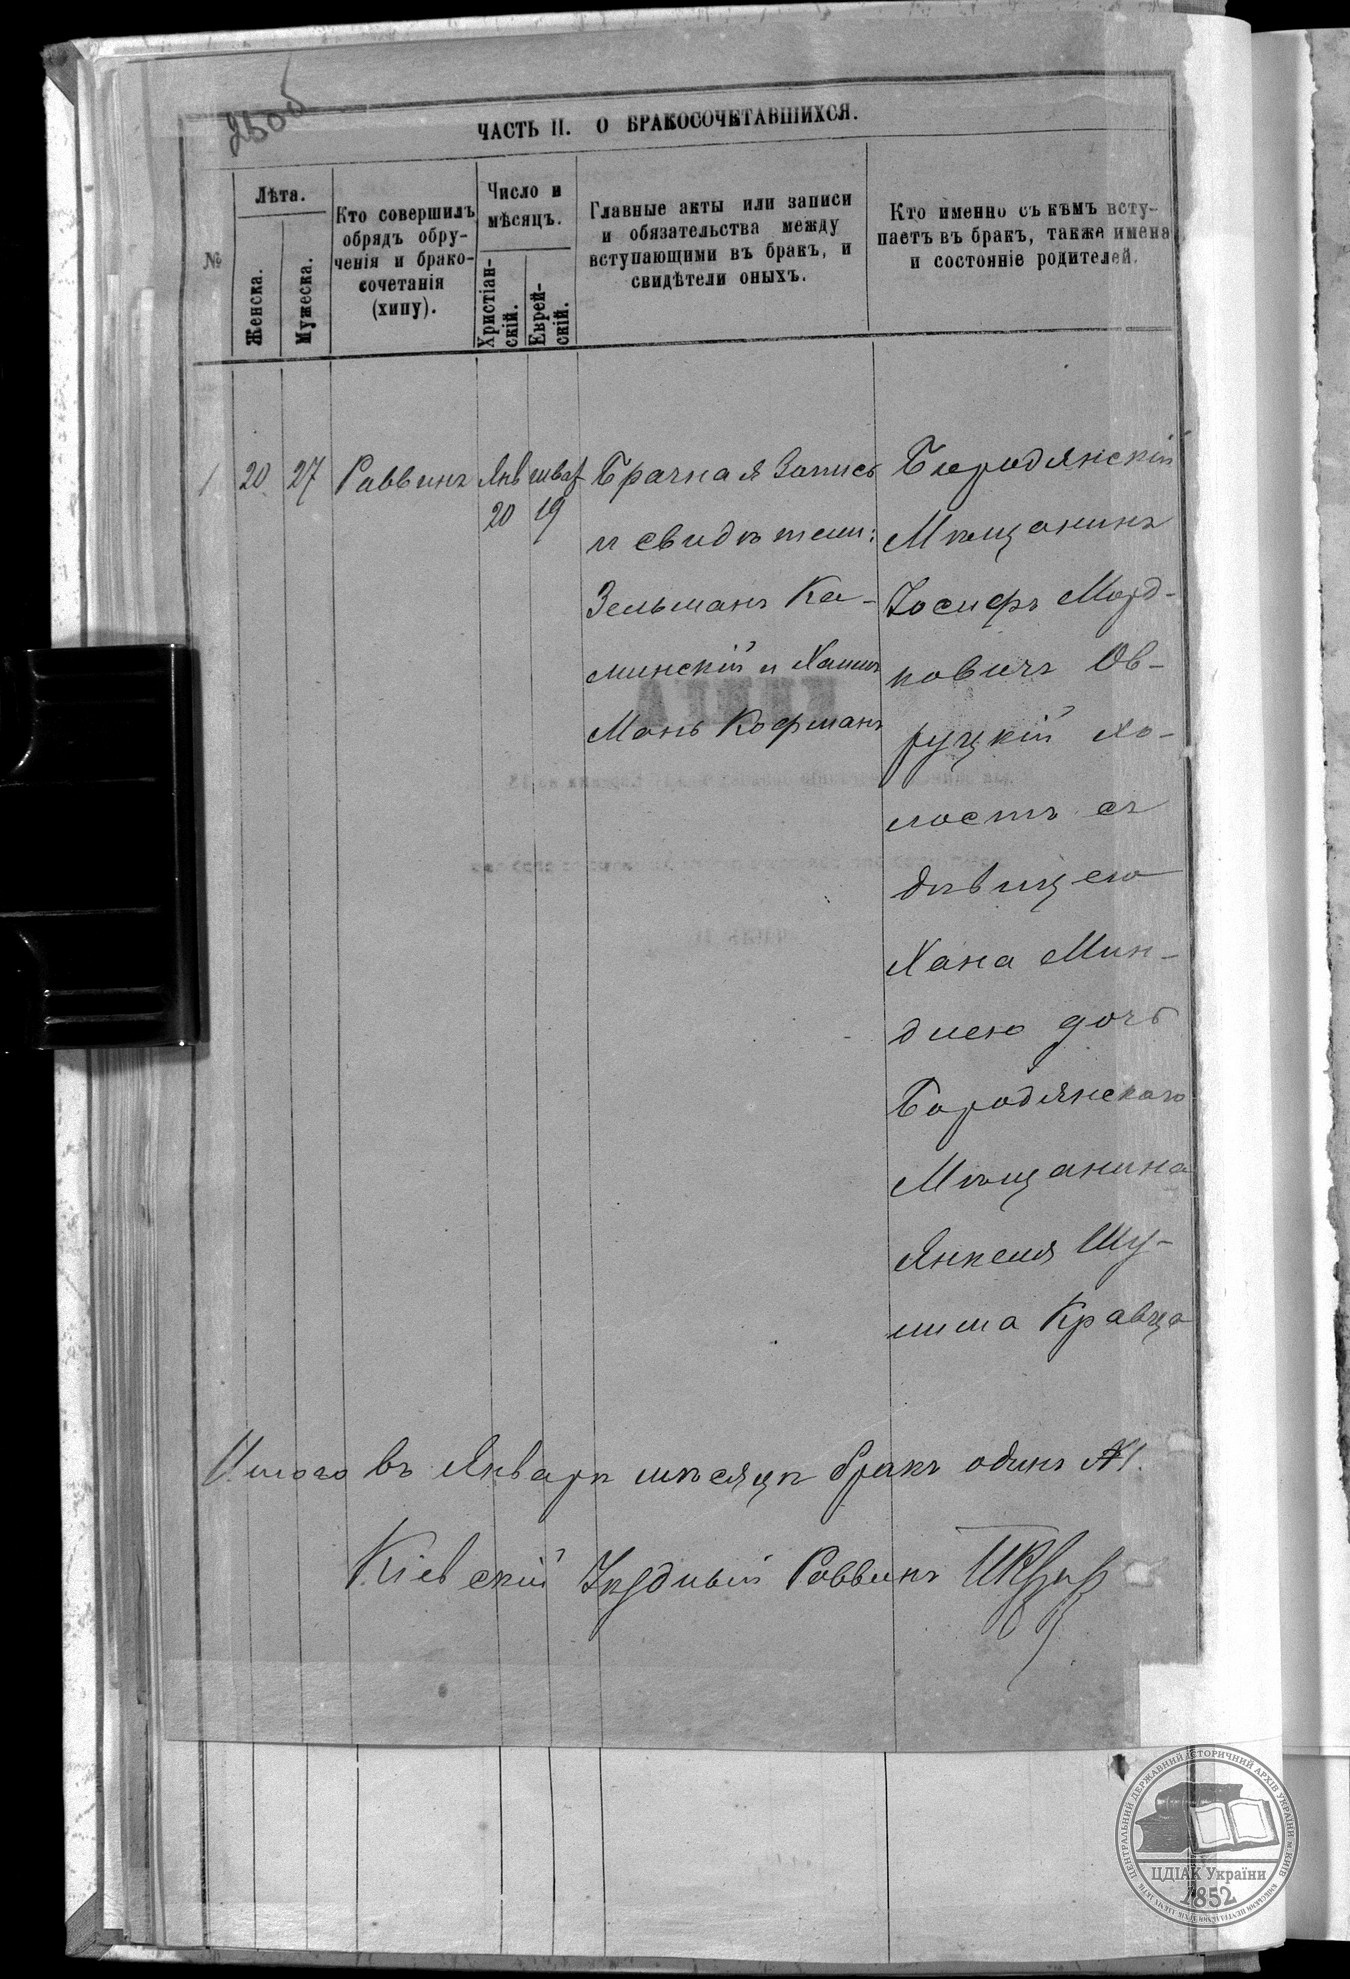 250б
ЧАСТЬ II. О БРАКОСОЧЕТАВШИХСЯ.
№
Лѣта.
Женска.
Мужеска.
Кто совершилъ
обрядъ обру-
ченія и брако-
сочетанія
(хипу).
Число и
мѣсяцъ.
Христіан-
скій.
Еврей-
скій.
Главные акты или записи
и обязательства между
вступающими въ бракъ, и
свидѣтели оныхъ.
Кто именно съ кѣмъ всту-
паетъ въ бракъ, также имена
и состояніе родителей.
1
20
27
Раввинъ
Янв
20
шват
19
Брачная Запись
и свидѣтели:
Зельманъ Ка-
минскій и Хаимъ
Мань Кофманъ
Бородянскій
Мѣщанинъ
Іосифъ Морд-
ковичъ Ов-
руцкій хо-
лостъ съ
дѣвицею
Хана Мин-
длею дочь
Бородянскаго
Мѣщанина
Янкеля Шу-
лима Кравца
Итого въ Январѣ мѣсяцѣ бракъ одинъ №1.
Кіевскій Уѣздный Раввинъ
ЦЕНТРАЛЬНИЙ ДЕРЖАВНИЙ ІСТОРИЧНИЙ АРХІВ УКРАЇНИ м.КИЇВ
ЦДІАК України
1852